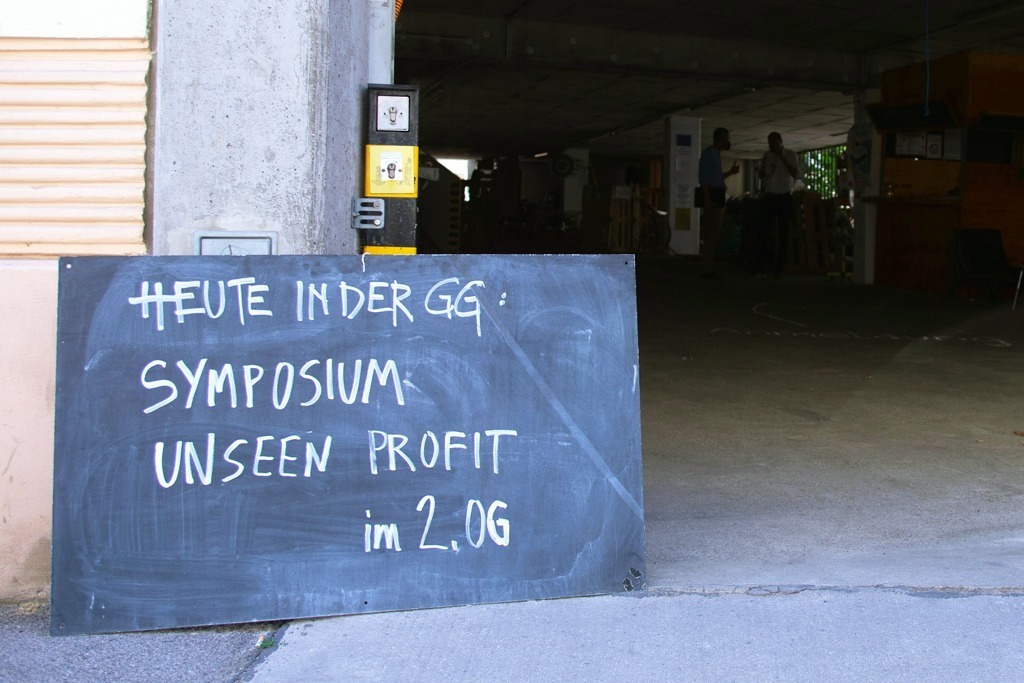 HEUTE IN DER GG:
SYMPOSIUM
UNSEEN PROFIT
im 2.OG